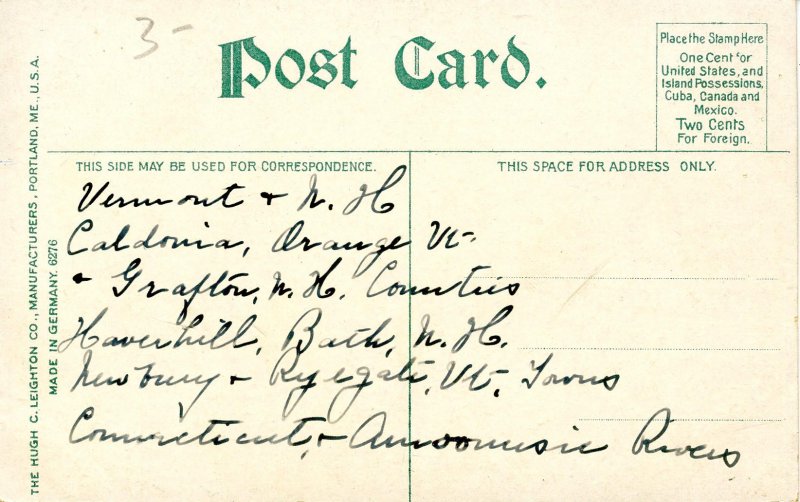 3-
Post Card.
Place the Stamp Here
One Cent for
United States, and
Island Possessions,
Cuba, Canada and
Mexico.
Two Cents
For Foreign.
THIS SIDE MAY BE USED FOR CORRESPONDENCE.
THIS SPACE FOR ADDRESS ONLY.
Vermont + N. H
Caldonia, Orange Vt.
+ Grafton, N. H. Counties
Haverhill, Bath, N. H.
Newbury + Ryegate, Vt, Towns
Connecticut, + Amoonusic Rivers
THE HUGH C. LEIGHTON CO., MANUFACTURERS, PORTLAND, ME., U.S.A.
MADE IN GERMANY. 6276